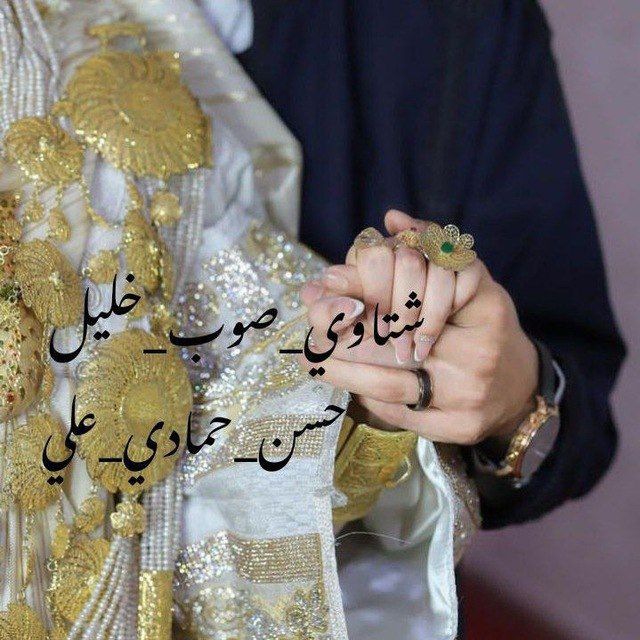 شتاوي_صوب_خليل
حسن_حمادي_علي